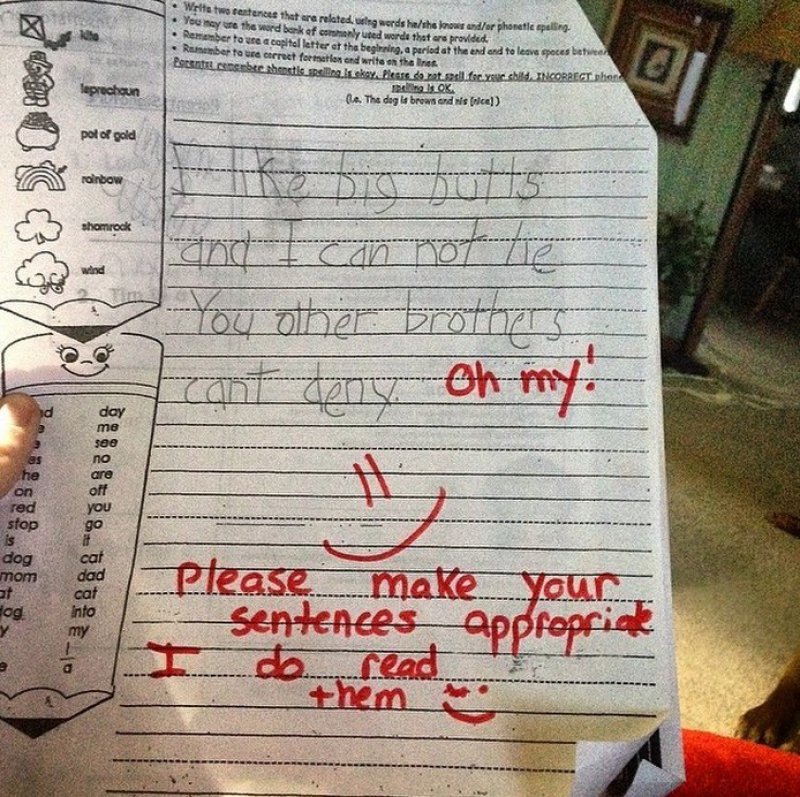 • Write two sentences that are related, using words he/she knows and/or phonetic spelling.
• You may use the word bank of commonly used words that are provided.
• Remember to use a capital letter at the beginning, a period at the end and to leave spaces between
• Remember to use correct formation and write on the lines.
Parents: remember phonetic spelling is okay. Please do not spell for your child. INCORRECT phon
spelling is OK.
(i.e. The dog is brown and nis [nice])
kite
leprechaun
pot of gold
rainbow
shamrock
wind
I like big butts
and I can not lie
You other brothers
cant deny.
Oh my!
Please make your
sentences appropriate
I do read
them
day
me
see
es no
he are
on off
red you
stop go
is it
dog cat
mom dad
at cat
log into
y my
I
a